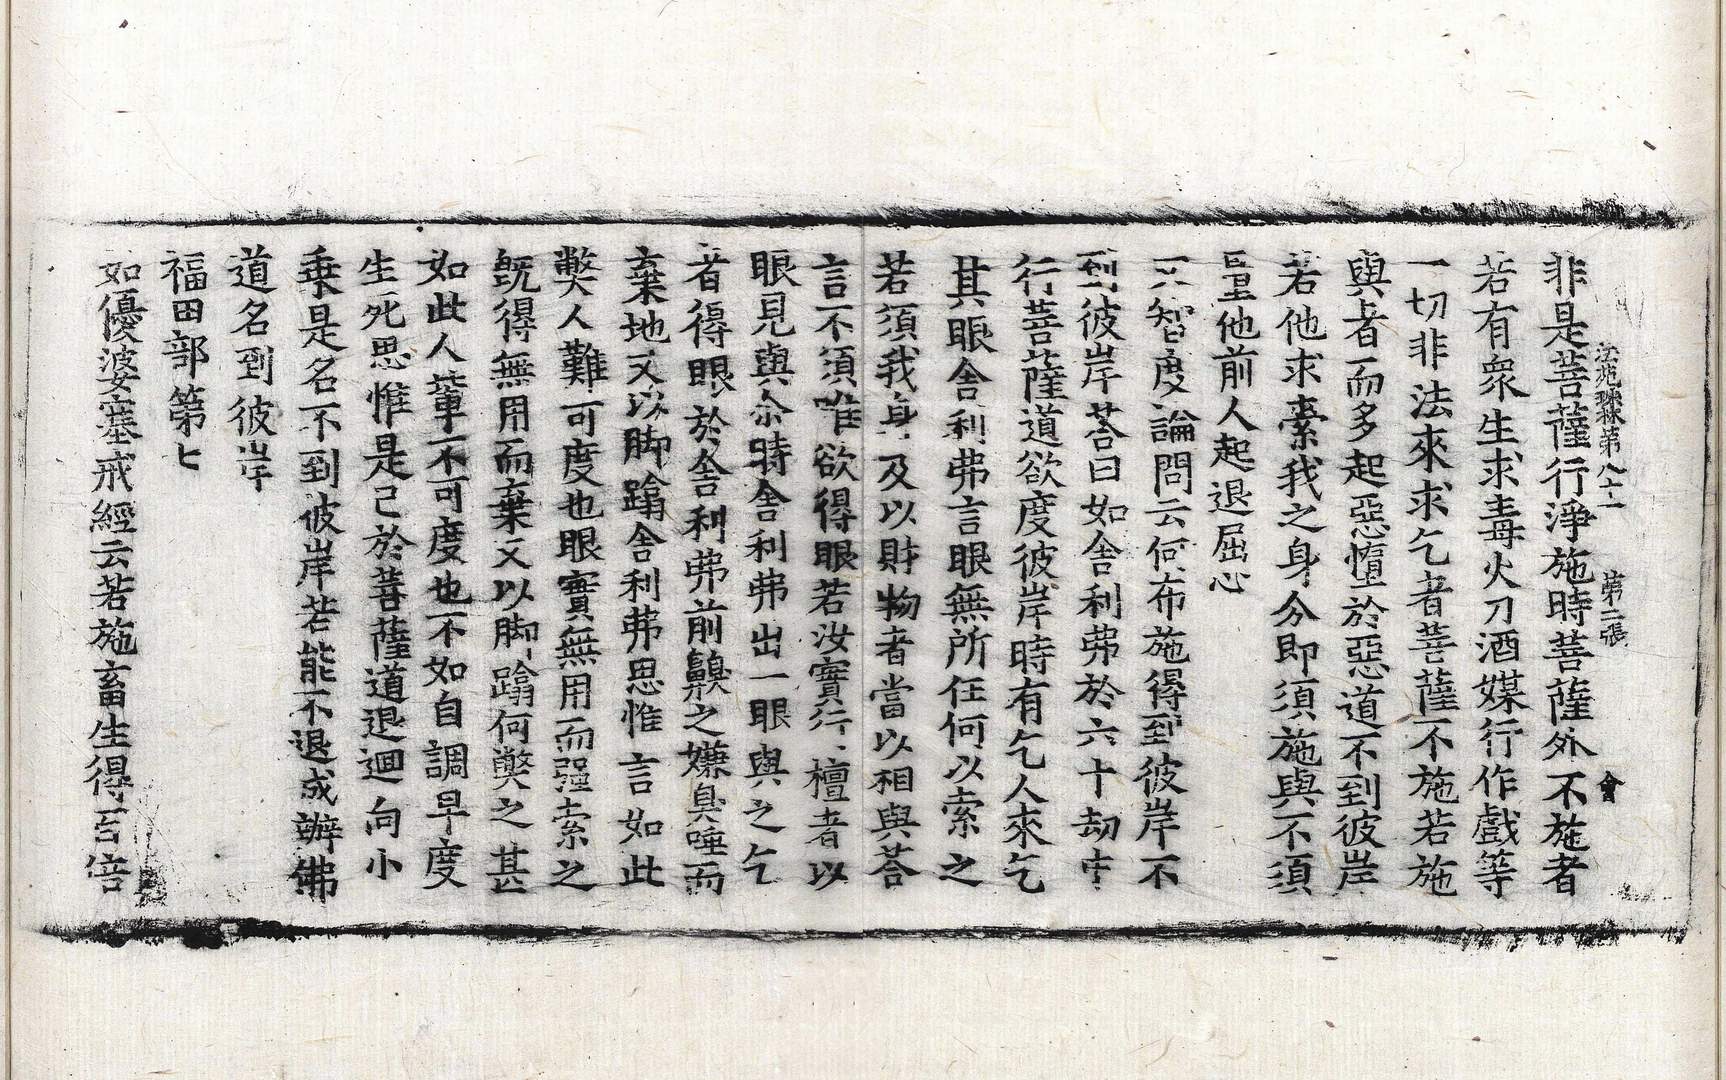 法苑珠林第八十一　第二張　會
非是菩薩行淨施時菩薩外不施者
若有衆生求毒火刀酒媒行作戲等
一切非法來求乞者菩薩不施若施
與者而多起惡墮於惡道不到彼岸
若他求索我之身分即須施與不須
量他前人起退屈心
智度論問云何布施得到彼岸不
到彼岸荅曰如舍利弗於六十劫中
行菩薩道欲度彼岸時有乞人來乞
其眼舍利弗言眼無所任何以索之
若須我身及以財物者當以相與荅
言不須唯欲得眼若汝實行檀者以
眼見與尒時舍利弗出一眼與之乞
者得眼於舍利弗前齅之嫌臭唾而
棄地又以脚蹹舍利弗思惟言如此
弊人難可度也眼實無用而強索之
旣得無用而棄又以脚蹹何弊之甚
如此人軰不可度也不如自調早度
生死思惟是已於菩薩道退迴向小
乗是名不到彼岸若能不退成辦佛
道名到彼岸
福田部第七
如優婆塞戒經云若施畜生得百倍